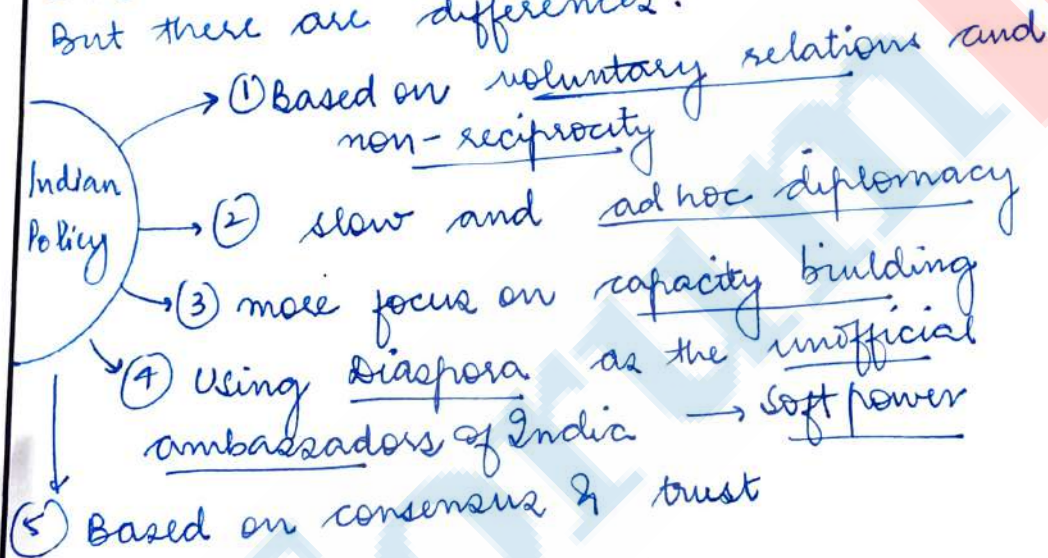 But there are differences.
Indian Policy
① Based on voluntary relations and
non-reciprocity
② slow and ad hoc diplomacy
③ more focus on capacity building
④ Using Diaspora as the unofficial
ambassadors of India → soft power
⑤ Based on consensus & trust